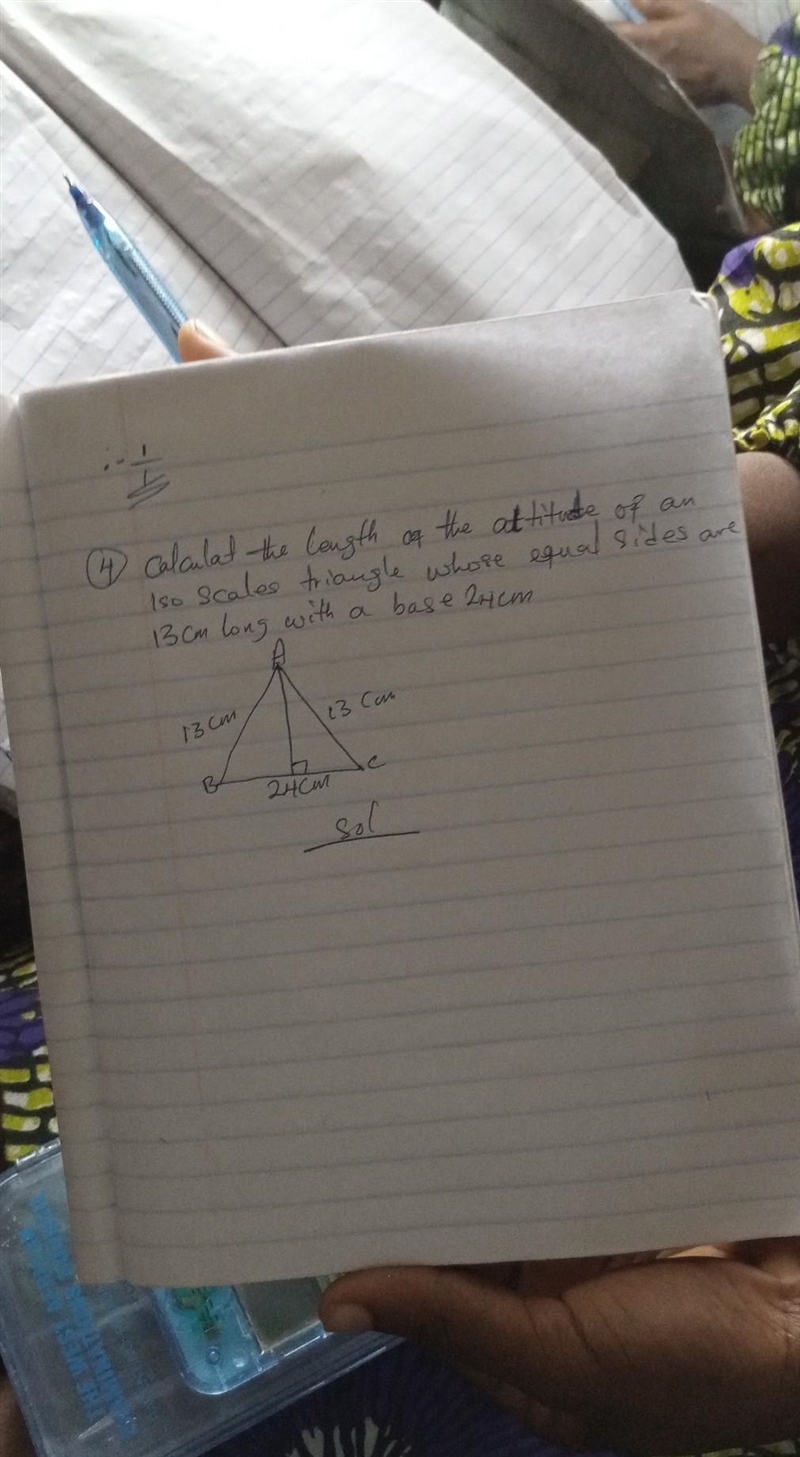 ∴ 1/1
④ Calculat the length of the altitude of an
Iso scales triangle whose equal sides are
13cm long with a base 24cm
A
13cm
13 cm
B
C
24cm
Sol